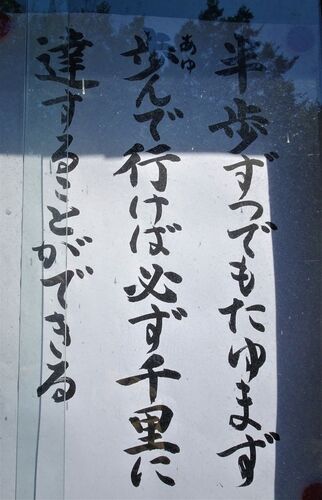 半歩ずつでもたゆまず
歩んで行けば必ず千里に
達することができる